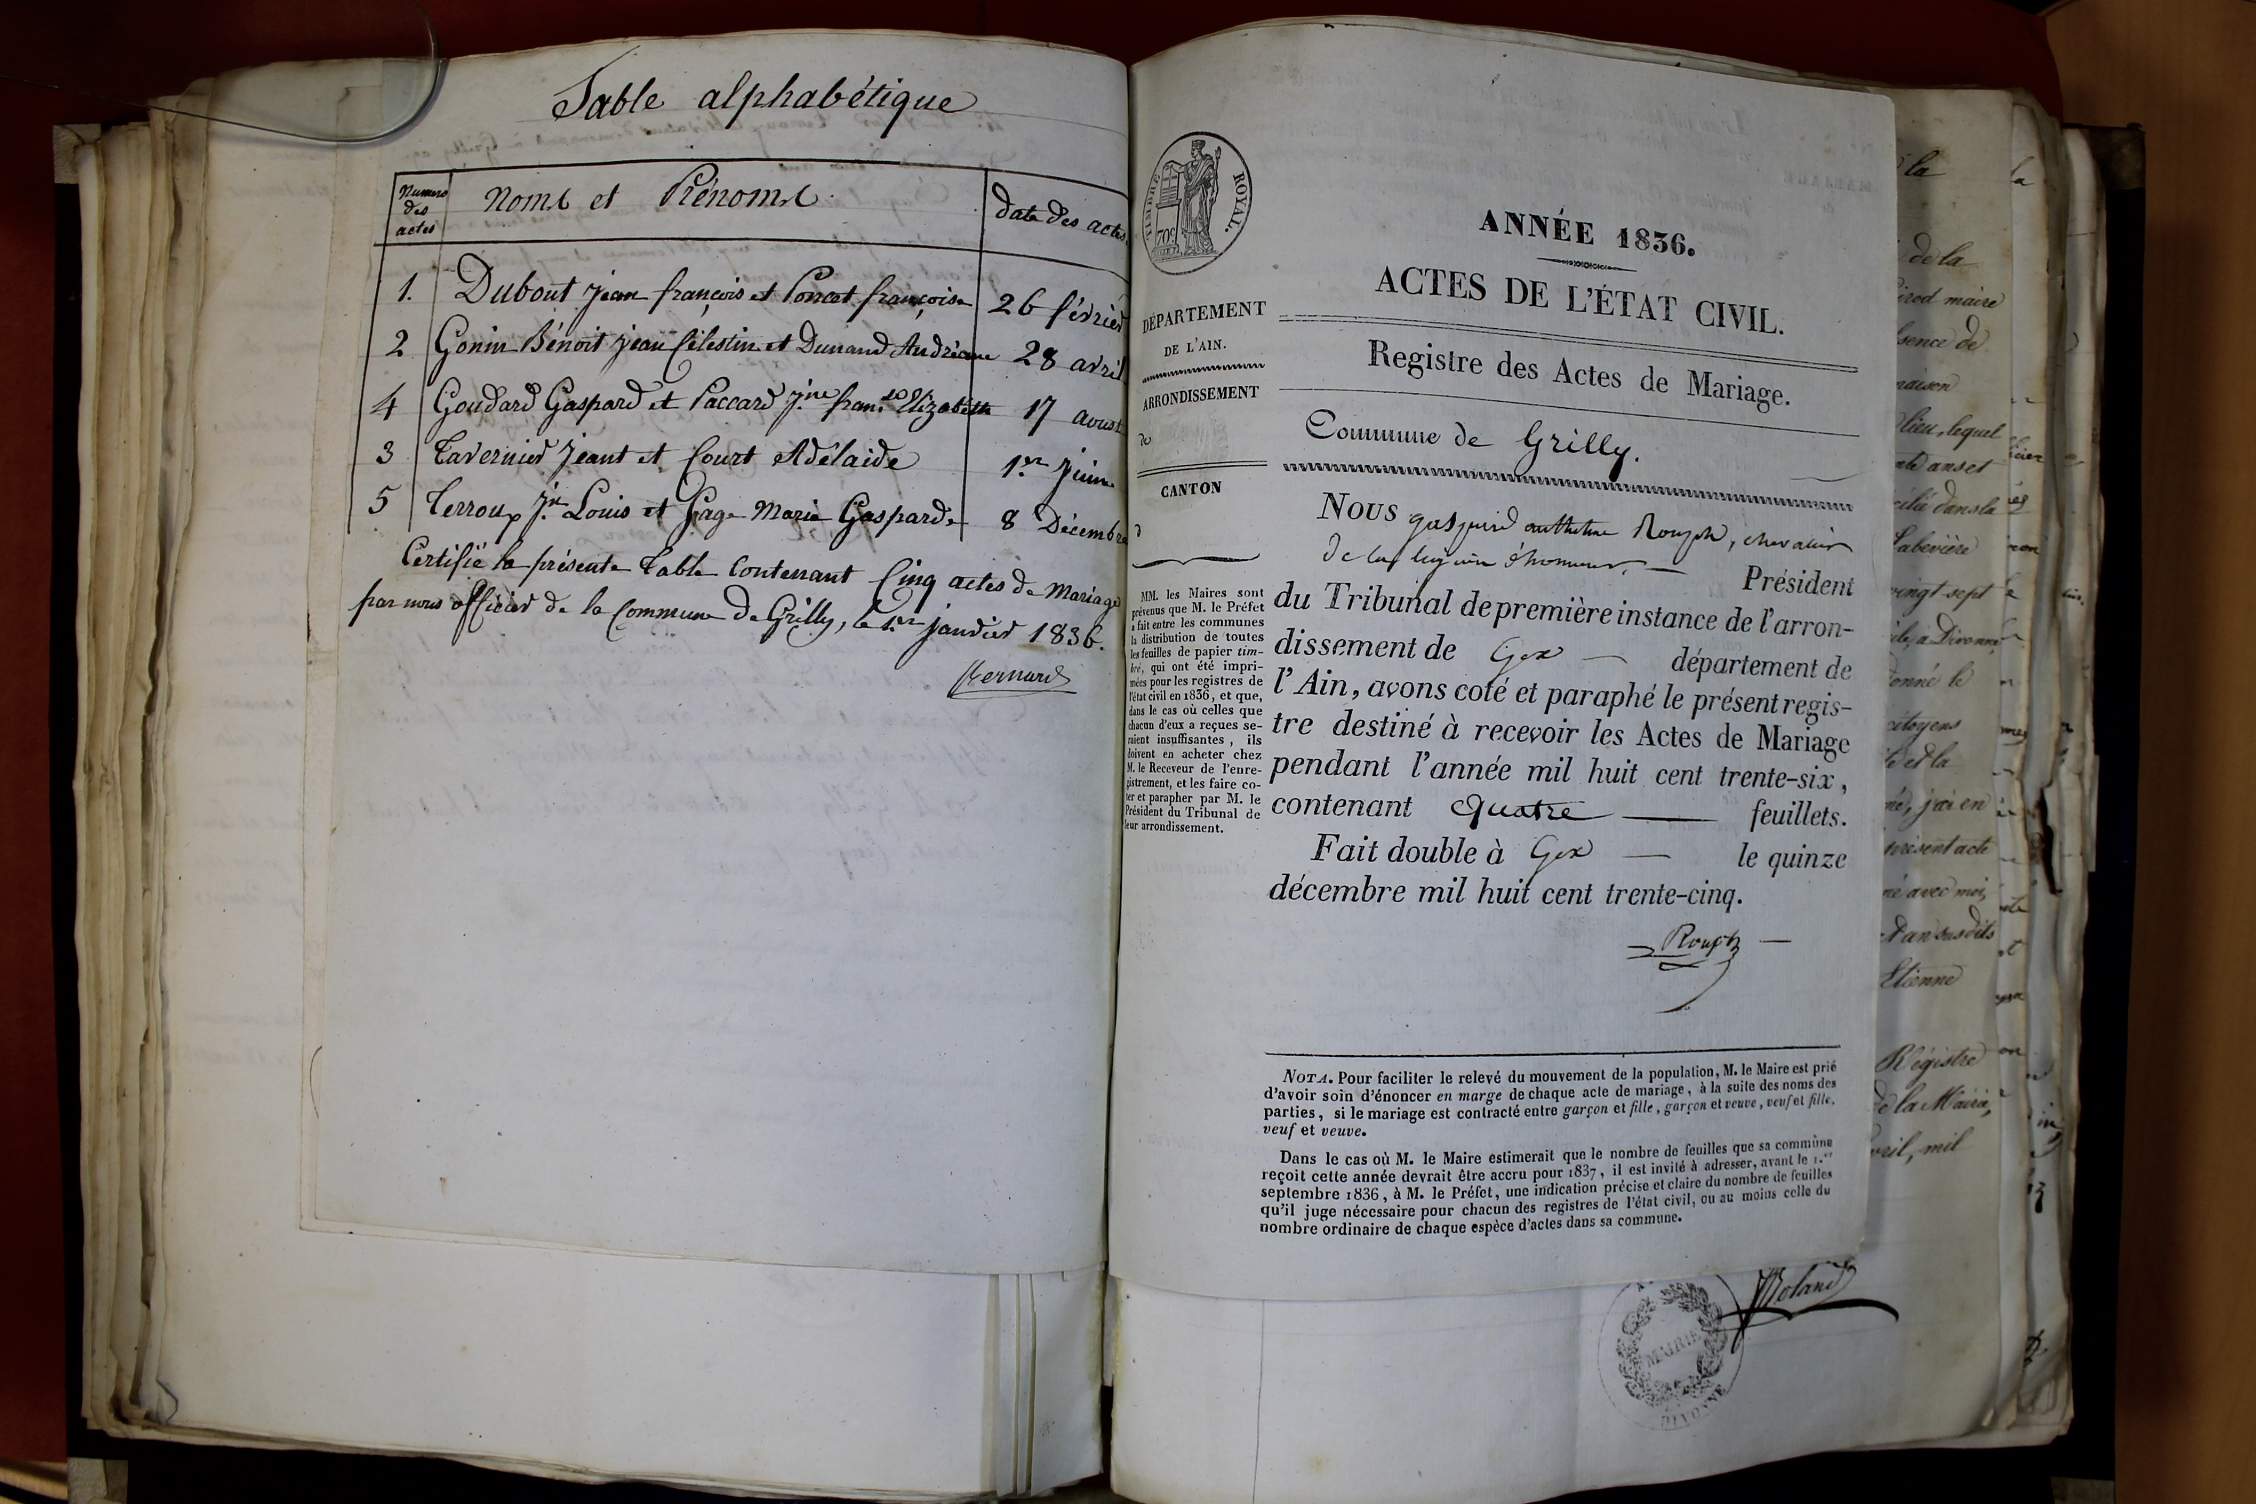 Table alphabétique
Numero des actes
Noms et Prénoms
date des actes
1. Dubout Jean françois et Poncet françoise 26 février
2 Gonin Bénoit Jean Célestin et Dunand Andréanne 28 avril
4 Goudard Gaspard et Paccard J.ne fran.se Elizabeth 17 avoust
3 Tavernier Jeant et Court Adélaide 1.er Juin
5 Terroux J.n Louis et Gage Marie Gasparde 8 Décembre
Certifié la présente Table Contenant Cinq actes de Mariage
par nous officier de la Commune de Grilly, le 1.er janvier 1836.
Bernard
TIMBRE ROYAL.
70c
ANNÉE 1836.
ACTES DE L'ÉTAT CIVIL.
Registre des Actes de Mariage.
Commune de Grilly.
DÉPARTEMENT
DE L'AIN.
ARRONDISSEMENT
de
CANTON
d
MM. les Maires sont
prévenus que M. le Préfet
a fait entre les communes
la distribution de toutes
les feuilles de papier tim-
bré, qui ont été impri-
mées pour les registres de
l'état civil en 1836, et que,
dans le cas où celles que
chacun d'eux a reçues se-
raient insuffisantes, ils
doivent en acheter chez
M. le Receveur de l'enre-
gistrement, et les faire co-
ter et parapher par M. le
Président du Tribunal de
leur arrondissement.
NOUS gaspard anthelme Rouph, chevalier
de la legion d'honneur, Président
du Tribunal de première instance de l'arron-
dissement de Gex département de
l'Ain, avons coté et paraphé le présent regis-
tre destiné à recevoir les Actes de Mariage
pendant l'année mil huit cent trente-six,
contenant quatre feuillets.
Fait double à Gex le quinze
décembre mil huit cent trente-cinq.
Rouph
NOTA. Pour faciliter le relevé du mouvement de la population, M. le Maire est prié
d'avoir soin d'énoncer en marge de chaque acte de mariage, à la suite des noms des
parties, si le mariage est contracté entre garçon et fille, garçon et veuve, veuf et fille,
veuf et veuve.
Dans le cas où M. le Maire estimerait que le nombre de feuilles que sa commune
reçoit cette année devrait être accru pour 1837, il est invité à adresser, avant le 1.er
septembre 1836, à M. le Préfet, une indication précise et claire du nombre de feuilles
qu'il juge nécessaire pour chacun des registres de l'état civil, ou au moins celle du
nombre ordinaire de chaque espèce d'actes dans sa commune.
la
de la
maire
de
lieu, lequel
ans et
dans la
vingt-sept
à Divonne
donné le
citoyens
et la
j'ai en
présent acte
avec moi,
an susdits
Etienne
Régistre
de la Mairie,
mil
Roland
MAIRIE
DIVONNE